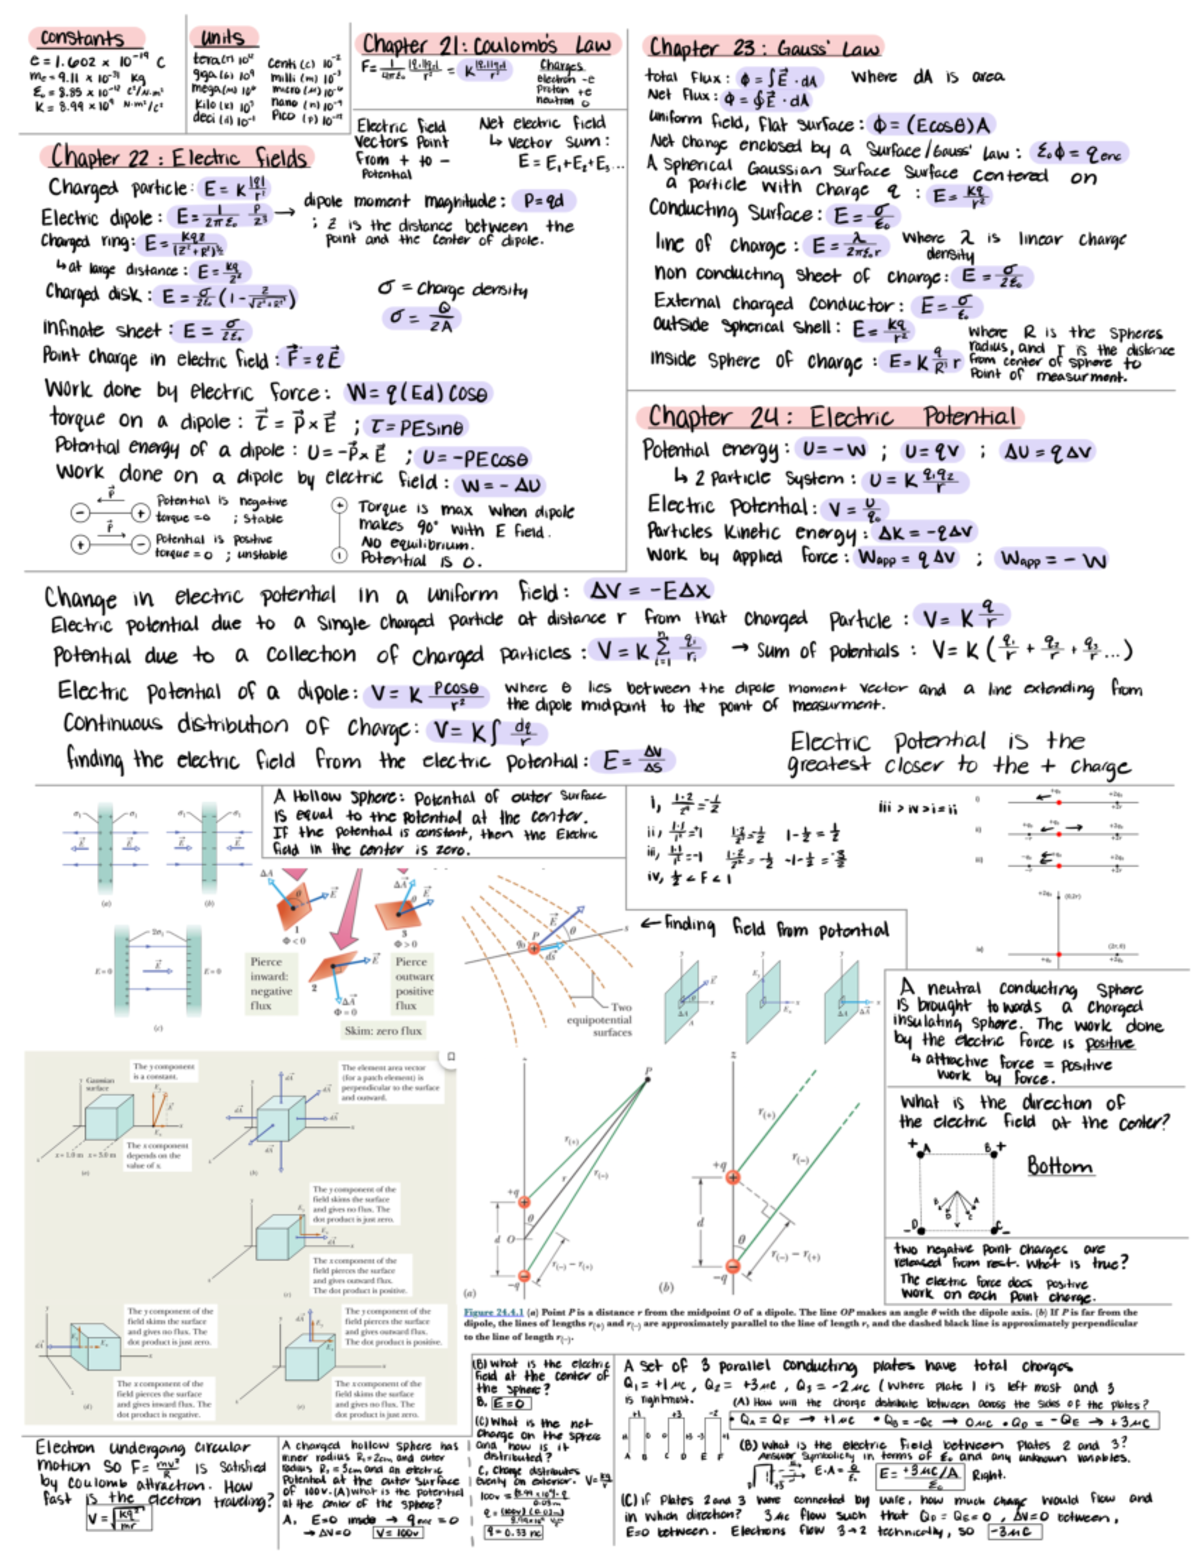 Constants
e = 1.602 × 10⁻¹⁹ C
me = 9.11 × 10⁻³¹ kg
ε₀ = 8.85 × 10⁻¹² C²/N·m²
K = 8.99 × 10⁹ N·m²/C²
Units
tera(T) 10¹²
giga(G) 10⁹
mega(M) 10⁶
kilo(K) 10³
deci(d) 10⁻¹
Centi (c) 10⁻²
milli (m) 10⁻³
micro(μ) 10⁻⁶
nano (n) 10⁻⁹
Pico (p) 10⁻¹²
Chapter 21: Coulomb's Law
Charges
electron -e
Proton +e
neutron 0
Electric field
Vectors Point
From + to -
Potential
Net electric field
↳ Vector Sum:
E = E₁+E₂+E₃...
Chapter 22: Electric fields
Charged particle: E = K |q|/r²
Electric dipole: E = 1/2πε₀ P/z³ →
dipole moment magnitude: P = qd
; z is the distance between the
point and the center of dipole.
Charged ring: E = Kqz/(z²+R²)^3/2
↳ at large distance: E = Kq/z²
Charged disk: E = σ/2ε₀ (1 - z/√(z²+R²))
σ = charge density
σ = Q/2A
Infinate sheet: E = σ/2ε₀
Point charge in electric field: F = qE
Work done by electric force: W = q(Ed)cosθ
torque on a dipole: τ = p × E ; τ = PEsinθ
Potential energy of a dipole: U = -p × E ; U = -PEcosθ
Work done on a dipole by electric field: W = -ΔU
Potential is negative
torque = 0 ; Stable
Potential is positive
torque = 0 ; unstable
Torque is max when dipole
makes 90° with E field.
No equilibrium.
Potential is 0.
Chapter 23: Gauss' Law
total Flux: Φ = ∫E · dA Where dA is area
Net Flux: Φ = ∮E · dA
Uniform field, Flat surface: Φ = (Ecosθ)A
Net Charge enclosed by a Surface/Gauss' Law: ε₀Φ = q enc
A Spherical Gaussian Surface Surface centered on
a particle with charge q: E = Kq/r²
Conducting Surface: E = σ/ε₀
line of charge: E = λ/2πε₀r Where λ is linear charge
density
non conducting sheet of charge: E = σ/2ε₀
External charged conductor: E = σ/ε₀
outside Spherical shell: E = Kq/r²
Inside Sphere of charge: E = K q/R³ r
Where R is the Spheres
radius, and r is the distance
from center of sphere to
Point of measurment.
Chapter 24: Electric Potential
Potential energy: U = -W ; U = qV ; ΔU = qΔV
↳ 2 Particle System: U = K q₁q₂/r
Electric Potential: V = U/q₀
Particles Kinetic energy: ΔK = -qΔV
Work by applied force: Wapp = qΔV ; Wapp = -W
Change in electric potential in a uniform field: ΔV = -EΔx
Electric potential due to a Single charged particle at distance r from that charged Particle: V = K q/r
Potential due to a collection of charged particles: V = K Σ qᵢ/rᵢ → Sum of potentials: V = K (q₁/r + q₂/r + q₃/r ...)
Electric potential of a dipole: V = K Pcosθ/r² where θ lies between the dipole moment vector and a line extending from
the dipole midpoint to the point of measurment.
Continuous distribution of charge: V = K∫ dq/r
finding the electric field from the electric potential: E = ΔV/ΔS
Electric Potential is the
greatest closer to the + charge
A Hollow Sphere: Potential of outer Surface
is equal to the Potential at the center.
If the Potential is constant, then the Electric
field in the center is zero.
iii > iv > i = ii
iv, ½ < F < 1
(a)
(b)
E = 0
E = 0
(c)
Φ<0
Φ>0
Φ = 0
Pierce
inward:
negative
flux
Pierce
outward
positive
flux
Skim: zero flux
Two
equipotential
surfaces
← finding field from potential
A neutral conducting Sphere
is brought towards a charged
insulating Sphere. The work done
by the electric Force is positive
↳ attractive force = positive
work by force.
What is the direction of
the electric field at the center?
Bottom
two negative point charges are
released from rest. What is true?
The electric force does positive
work on each point charge.
Gaussian
surface
The y component
is a constant.
The x component
depends on the
value of x.
x = 1.0 m x = 3.0 m
(a)
The element area vector
(for a patch element) is
perpendicular to the surface
and outward.
(b)
The y component of the
field skims the surface
and gives no flux. The
dot product is just zero.
The x component of the
field pierces the surface
and gives outward flux.
The dot product is positive.
(c)
The y component of the
field skims the surface
and gives no flux. The
dot product is just zero.
The x component of the
field pierces the surface
and gives inward flux. The
dot product is negative.
(d)
The y component of the
field pierces the surface
and gives outward flux.
The dot product is positive.
The x component of the
field skims the surface
and gives no flux. The
dot product is just zero.
(e)
(a)
(b)
Figure 24.4.1 (a) Point P is a distance r from the midpoint O of a dipole. The line OP makes an angle θ with the dipole axis. (b) If P is far from the
dipole, the lines of lengths r(+) and r(−) are approximately parallel to the line of length r, and the dashed black line is approximately perpendicular
to the line of length r(−).
Electron undergoing circular
motion so F = mv²/R is Satisfied
by coulomb attraction. How
fast is the electron traveling?
V = √(Kq²/mr)
A charged hollow sphere has
inner radius R₁=2cm and outer
radius R₂=3cm and an electric
Potential at the outer Surface
of 100V. (A) What is the potential
at the center of the Sphere?
A. E=0 inside → q enc = 0
→ ΔV=0 V = 100V
(B) What is the electric
field at the center of
the Sphere?
B. E = 0
(C) What is the net
Charge on the Sphere
and how is it
distributed?
C. Charge distributes
evenly on exterior.
q = 0.33 nC
A set of 3 parallel conducting plates have total charges
Q₁ = +1μC, Q₂ = +3μC, Q₃ = -2μC (Where plate 1 is left most and 3
is rightmost.
(A) How will the charge distribute between across the sides of the plates?
• QA = QF → +1μC • QB = -QC → 0μC • QD = -QE → +3μC
A B C D E F
(B) What is the electric field between Plates 2 and 3?
Answer Symbolicly in terms of ε₀ and any unknown variables.
E·A = Q/ε₀ E = +3μC/A / ε₀ Right.
(C) if Plates 2 and 3 were connected by wire, how much charge would flow and
in which direction? 3μC flow such that QD = QE = 0, ΔV=0 between,
E=0 between. Electrons flow 3→2 technically, so -3μC